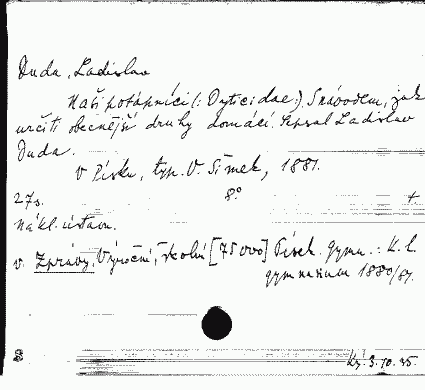 Duda, Ladislav
Naši potápníci (: Dyticidae:). S návodem, jak
určiti obecnější druhy domácí. Sepsal Ladislav
Duda.
V Písku, typ. V. Šimek, 1881.
27 s. 8° +
Nákl. ústavu.
v. Zprávy, Výroční, školní [75000] Písek. gymn.: K. k.
gymnasium 1880/81.